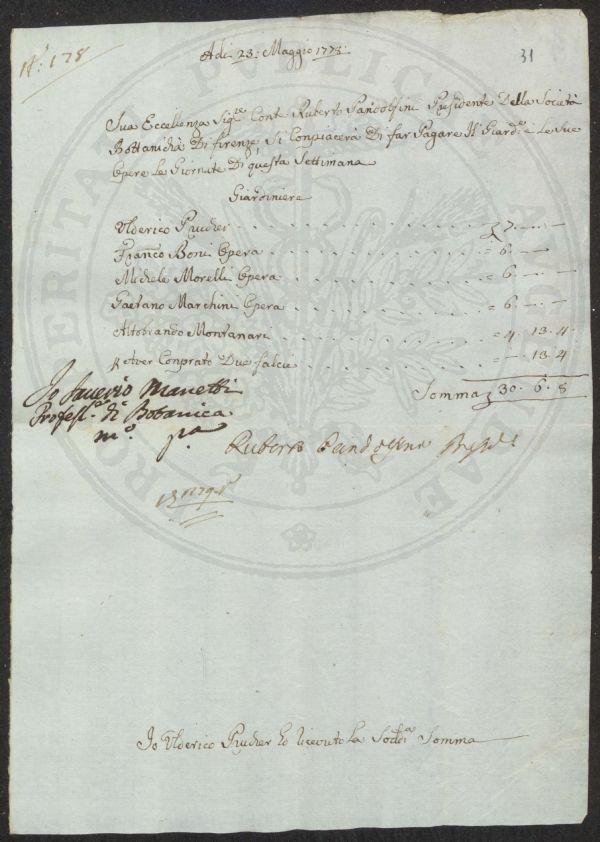 N.º 178
Adi: 23: Maggio 1773:
31
Sua Eccellenza Sig.re Conte Ruberto Pandolfini Presidente Della Società
Bottanicha Di firenze, Si Conpiacerà Di far Pagare Il Giard.e e Le Sue
Opere Le Giornate Di questa Settimana
Giardiniere
Ulderico Prucher . . . . . . . . 7. — . —
Franco Boni Opera . . . . . . . = 6. — . —
Michele Morelli Opera . . . . . . = 6. — . —
Gaetano Marchini Opera . . . . . . = 6. — . —
Altobrando Montanari . . . . . . = 4. 13. 4.
p Aver Conprato Due falcie . . . . . = — . 13. 4
Somma 30. 6. 8
Io Saverio Manetti
Profess.e di Botanica
m.o p.a
Ruberto Pandolfini
Io Ulderico Prucher ho riceuto La Sodd.a Somma
PRO PUBLICA